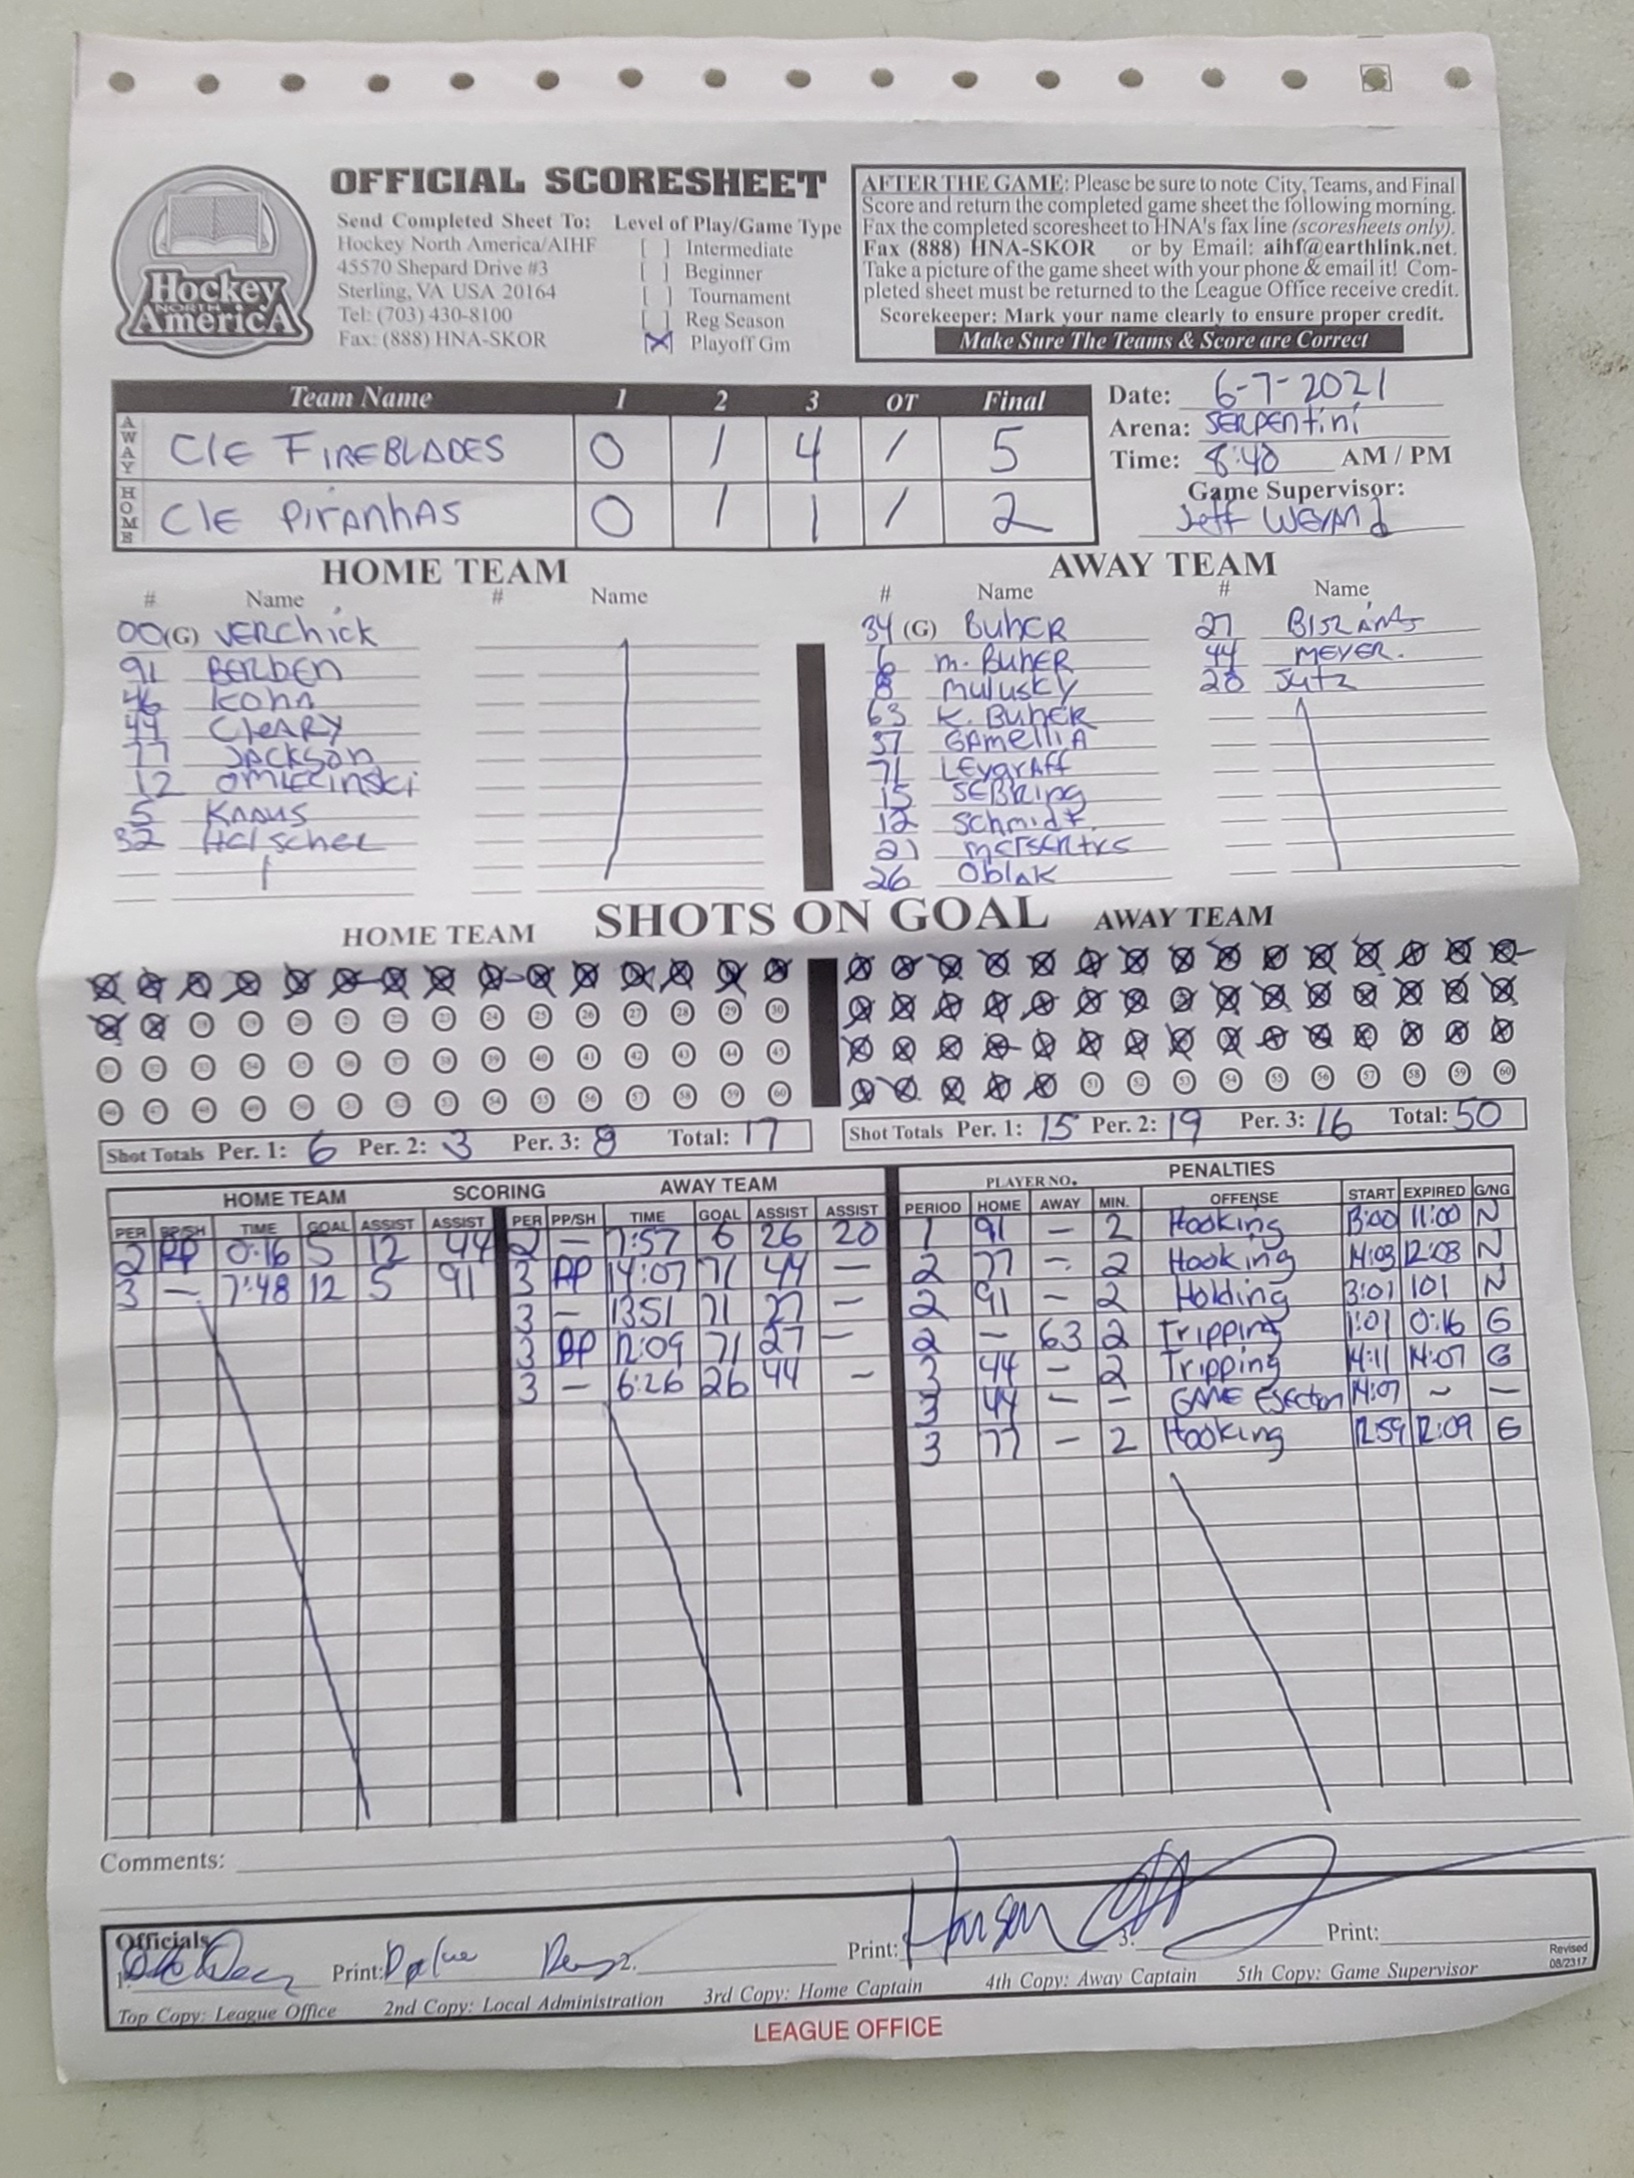 Hockey
NORTH
AmericA
OFFICIAL SCORESHEET
Send Completed Sheet To:
Hockey North America/AIHF
45570 Shepard Drive #3
Sterling, VA USA 20164
Tel: (703) 430-8100
Fax: (888) HNA-SKOR
Level of Play/Game Type
[ ] Intermediate
[ ] Beginner
[ ] Tournament
[ ] Reg Season
[X] Playoff Gm
AFTER THE GAME: Please be sure to note City, Teams, and Final
Score and return the completed game sheet the following morning.
Fax the completed scoresheet to HNA's fax line (scoresheets only).
Fax (888) HNA-SKOR or by Email: aihf@earthlink.net.
Take a picture of the game sheet with your phone & email it! Com-
pleted sheet must be returned to the League Office receive credit.
Scorekeeper: Mark your name clearly to ensure proper credit.
Make Sure The Teams & Score are Correct
Team Name 1 2 3 OT Final
AWAY CLE FIREBLADES 0 1 4 / 5
HOME CLE PIRANHAS 0 1 1 / 2
Date: 6-7-2021
Arena: SERPENTini
Time: 8:40 AM / PM
Game Supervisor:
Jeff WEYAND
HOME TEAM
# Name # Name
00 (G) VERCHICK
91 BERDEN
46 KOHN
44 CLEARY
77 JACKSON
12 OMIECINSKI
5 KNAUS
32
AWAY TEAM
# Name # Name
34 (G) BUHER 27
6 M. BUHER 44 MEYER.
8 MULUSKY 20 JUTZ
63 K. BUHER
37 GAMELLIA
71 LEVGRAFF
15 SEBRING
12 SCHMIDT
21
26 OBLAK
HOME TEAM SHOTS ON GOAL AWAY TEAM
18 19 20 21 22 23 24 25 26 27 28 29 30
31 32 33 34 35 36 37 38 39 40 41 42 43 44 45
46 47 48 49 50 51 52 53 54 55 56 57 58 59 60
51 52 53 54 55 56 57 58 59 60
Shot Totals Per. 1: 6 Per. 2: 3 Per. 3: 8 Total: 17
Shot Totals Per. 1: 15 Per. 2: 19 Per. 3: 16 Total: 50
HOME TEAM SCORING AWAY TEAM
PER PP/SH TIME GOAL ASSIST ASSIST PER PP/SH TIME GOAL ASSIST ASSIST
2 PP 0:16 5 12 44 2 — 7:57 6 26 20
3 — 7:48 12 5 91 3 PP 14:07 71 44 —
3 — 13:51 71 27 —
3 PP 12:09 71 27 —
3 — 6:26 26 44 —
PLAYER NO. PENALTIES
PERIOD HOME AWAY MIN. OFFENSE START EXPIRED G/NG
1 91 — 2 Hooking 13:00 11:00 N
2 77 — 2 Hooking 14:03 12:03 N
2 91 — 2 Holding 3:01 101 N
2 — 63 2 Tripping 1:01 0:16 G
3 44 — 2 Tripping 14:11 14:07 G
3 44 — — GAME Ejection 14:07 ~ —
3 77 — 2 Hooking 12:59 12:09 G
Comments:
Officials
1. Print: 2. Print: 3. Print:
Revised
08/2317
Top Copy: League Office 2nd Copy: Local Administration 3rd Copy: Home Captain 4th Copy: Away Captain 5th Copy: Game Supervisor
LEAGUE OFFICE